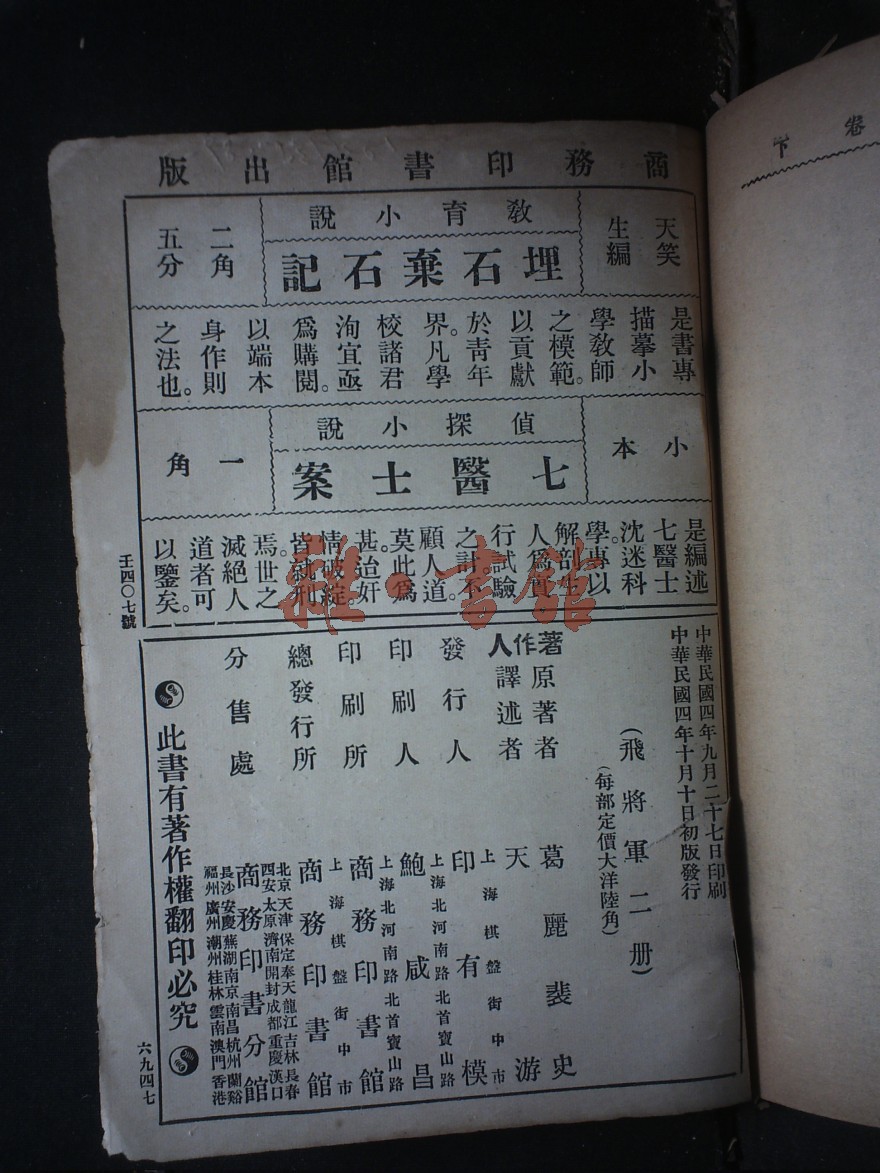 商務印書館出版
天笑
生編
教育小說
埋石棄石記
二角
五分
是書專
描摹小
學教師
之模範。
以貢獻
於靑年
界。凡學
校諸君
洵宜亟
爲購閱。
以端本
身作則
之法也。
小本
偵探小說
七醫士案
一角
是編述
七醫士
沈迷科
學。專以
解剖生
人爲實
行試驗
之計。不
顧人道。
莫此爲
甚。迨奸
情破綻。
皆就刑
焉。世之
滅絕人
道者可
以鑒矣。
壬四〇七號
中華民國四年九月二十七日印刷
中華民國四年十月十日初版發行
(飛將軍二册)
(每部定價大洋陸角)
著作人
原著者 葛麗裴史
譯述者 天游
發行人 印有模
上海棋盤街中市
印刷人 鮑咸昌
上海北河南路北首寶山路
印刷所 商務印書館
上海北河南路北首寶山路
總發行所 商務印書館
上海棋盤街中市
分售處 商務印書分館
北京天津保定奉天龍江吉林長春
西安太原濟南開封成都重慶漢口
長沙安慶蕪湖南京南昌杭州蘭谿
福州廣州潮州桂林雲南澳門香港
此書有著作權翻印必究
六九四七
卷下
雜·書館